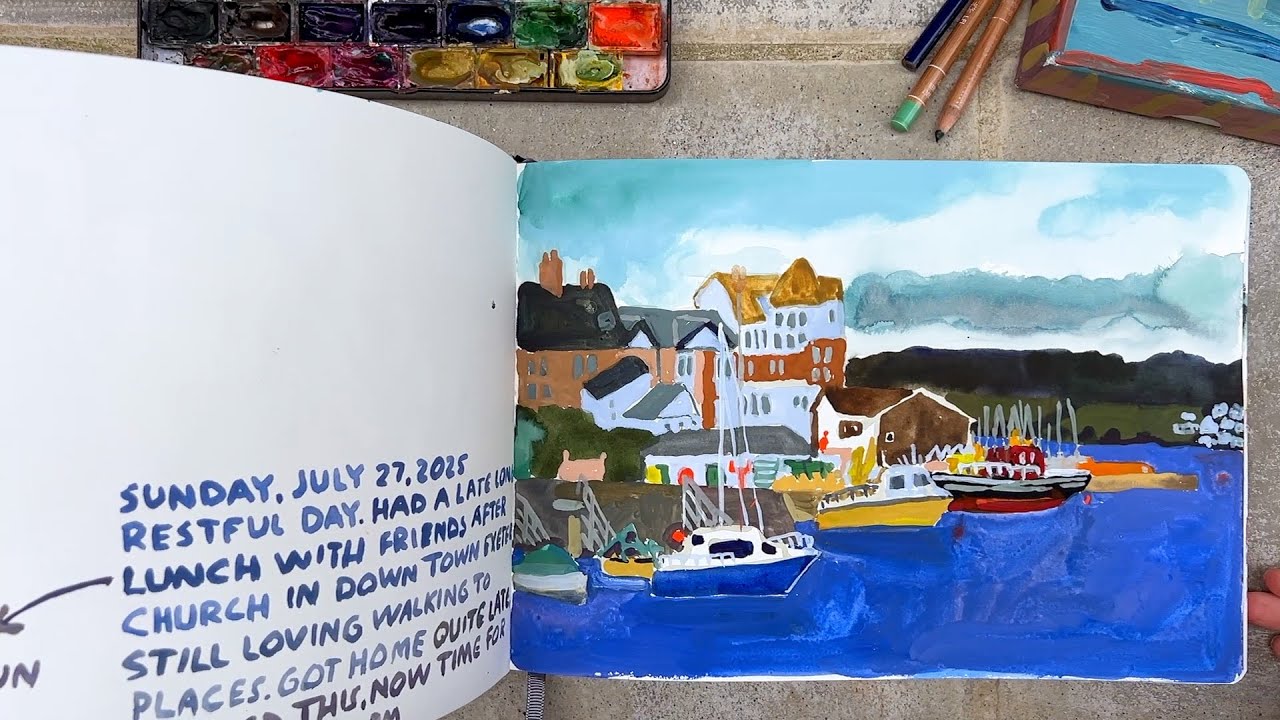 SUNDAY, JULY 27, 2025
RESTFUL DAY. HAD A LATE LON
LUNCH WITH FRIENDS AFTER
CHURCH IN DOWN TOWN EXETE
STILL LOVING WALKING TO
PLACES. GOT HOME QUITE LATE
THIS, NOW TIME FOR
UN